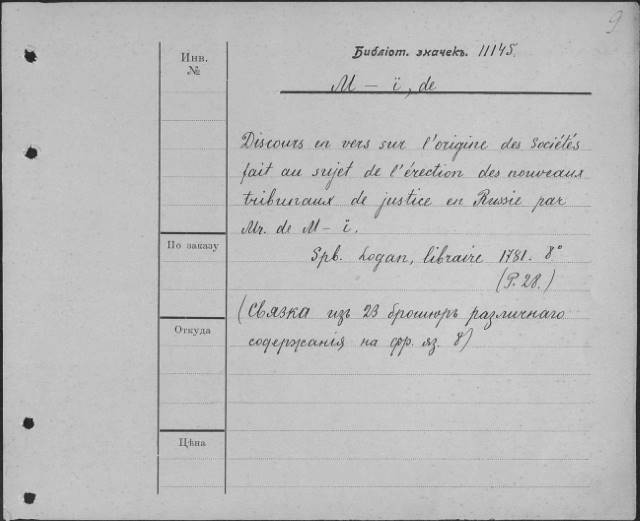 9
Инв.
№
Библіот. значекъ. 11145.
M – ï, de
Discours en vers sur l'origine des Sociétés
fait au sujet de l'érection des nouveaux
tribunaux de justice en Russie par
Mr. de M – ï.
По заказу
Spb. Logan, libraire 1781. 8°
(P. 28.)
(Связка изъ 23 брошюръ различнаго
Откуда
содержанія на фр. яз. 8)
Цѣна